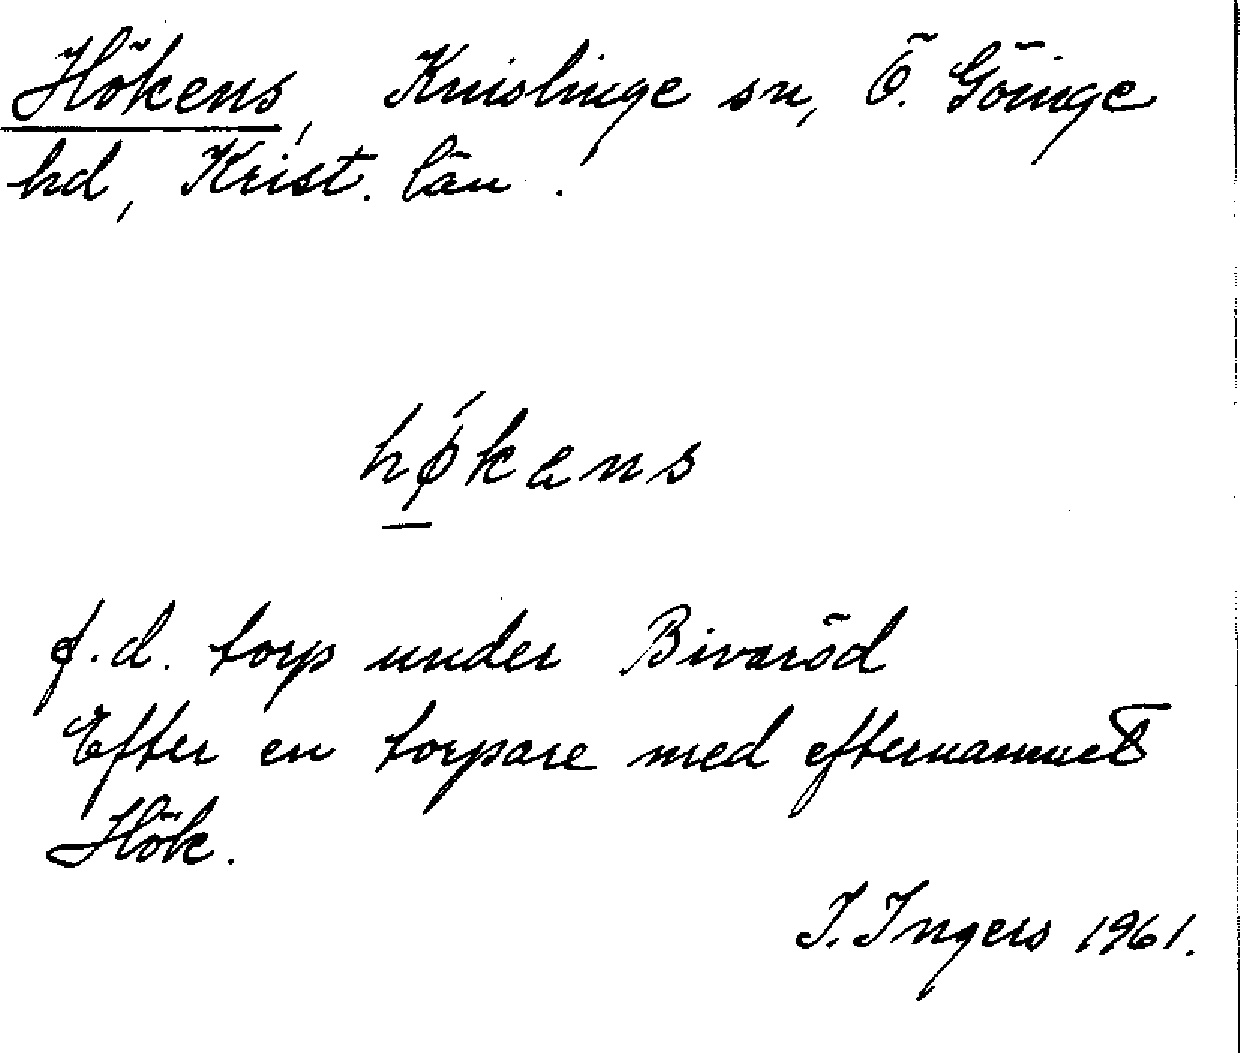 Hökens, Knislinge sn, Ö. Göinge
hd, Krist. län.
hǿkans
f.d. torp under Bivaröd
Efter en torpare med efternamnet
Hök.
I. Ingers 1961.